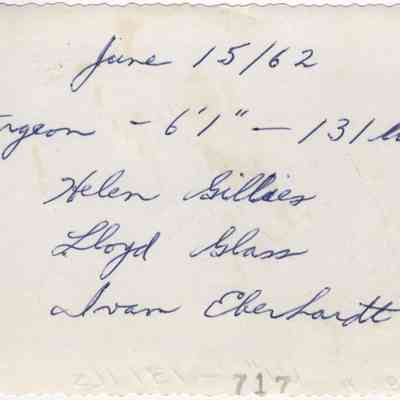 June 15/62
urgeon - 6'1" - 131 lb
Helen Gillies
Lloyd Glass
Ivan Eberhardt
717